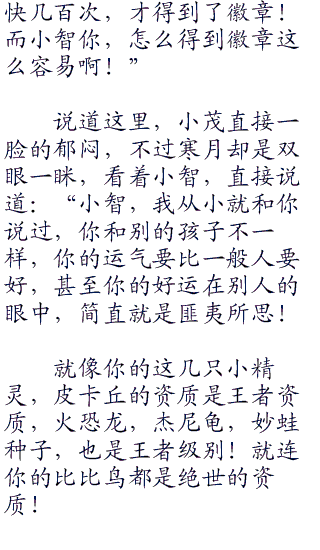 快几百次，才得到了徽章！
而小智你，怎么得到徽章这
么容易啊！”
说道这里，小茂直接一
脸的郁闷，不过寒月却是双
眼一眯，看着小智，直接说
道：“小智，我从小就和你
说过，你和别的孩子不一
样，你的运气要比一般人要
好，甚至你的好运在别人的
眼中，简直就是匪夷所思！
就像你的这几只小精
灵，皮卡丘的资质是王者资
质，火恐龙，杰尼龟，妙蛙
种子，也是王者级别！就连
你的比比鸟都是绝世的资
质！